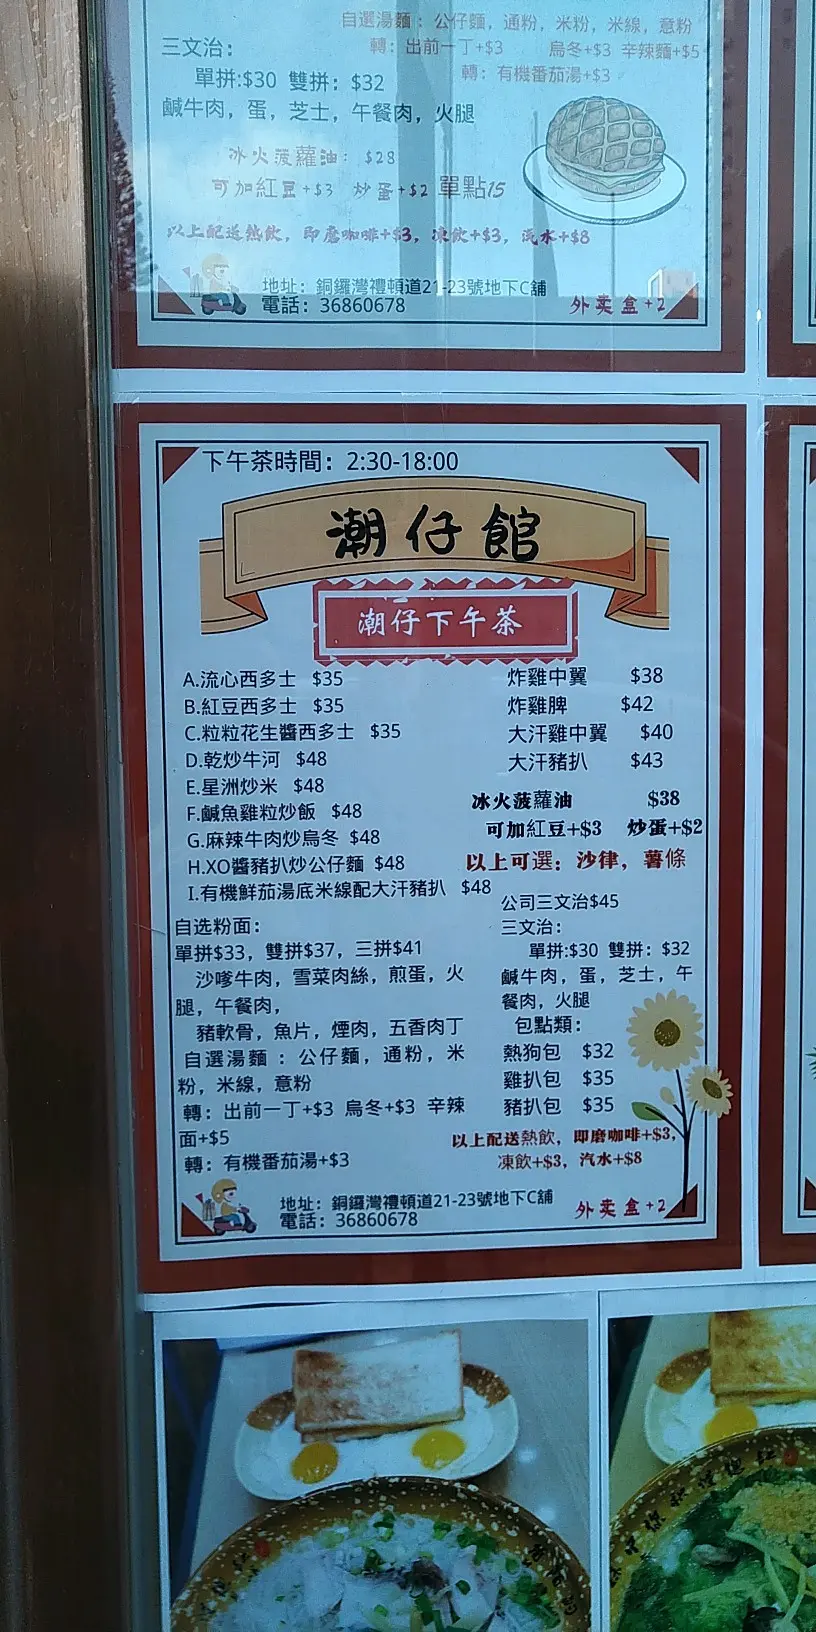 自選湯麵：公仔麵，通粉，米粉，米線，意粉
三文治：
轉：出前一丁+$3 烏冬+$3 辛辣麵+$5
單拼:$30 雙拼：$32
轉：有機番茄湯+$3
鹹牛肉，蛋，芝士，午餐肉，火腿
冰火菠蘿油：$28
可加紅豆+$3 炒蛋+$2 單點15
以上配送熱飲，即磨咖啡+$3，凍飲+$3，汽水+$8
地址：銅鑼灣禮頓道21-23號地下C舖
電話：36860678
外卖盒+2
下午茶時間：2:30-18:00
潮仔館
潮仔下午茶
A.流心西多士 $35
B.紅豆西多士 $35
C.粒粒花生醬西多士 $35
D.乾炒牛河 $48
E.星洲炒米 $48
F.鹹魚雞粒炒飯 $48
G.麻辣牛肉炒烏冬 $48
H.XO醬豬扒炒公仔麵 $48
I.有機鮮茄湯底米線配大汗豬扒 $48
炸雞中翼 $38
炸雞脾 $42
大汗雞中翼 $40
大汗豬扒 $43
冰火菠蘿油 $38
可加紅豆+$3 炒蛋+$2
以上可選：沙律，薯條
自选粉面：
單拼$33，雙拼$37，三拼$41
沙嗲牛肉，雪菜肉絲，煎蛋，火
腿，午餐肉，
豬軟骨，魚片，煙肉，五香肉丁
自選湯麵：公仔麵，通粉，米
粉，米線，意粉
轉：出前一丁+$3 烏冬+$3 辛辣
面+$5
轉：有機番茄湯+$3
公司三文治$45
三文治：
單拼:$30 雙拼：$32
鹹牛肉，蛋，芝士，午
餐肉，火腿
包點類：
熱狗包 $32
雞扒包 $35
豬扒包 $35
以上配送熱飲，即磨咖啡+$3，
凍飲+$3，汽水+$8
地址：銅鑼灣禮頓道21-23號地下C舖
電話：36860678
外卖盒+2